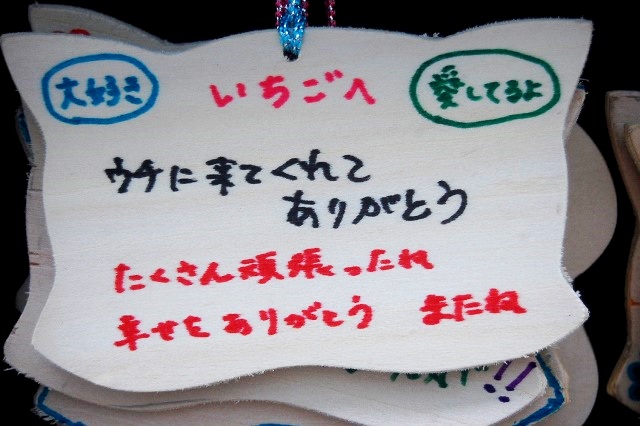 大好き いちごへ 愛してるよ
ウチに来てくれて
ありがとう
たくさん頑張ったね
幸せをありがとう またね
!!